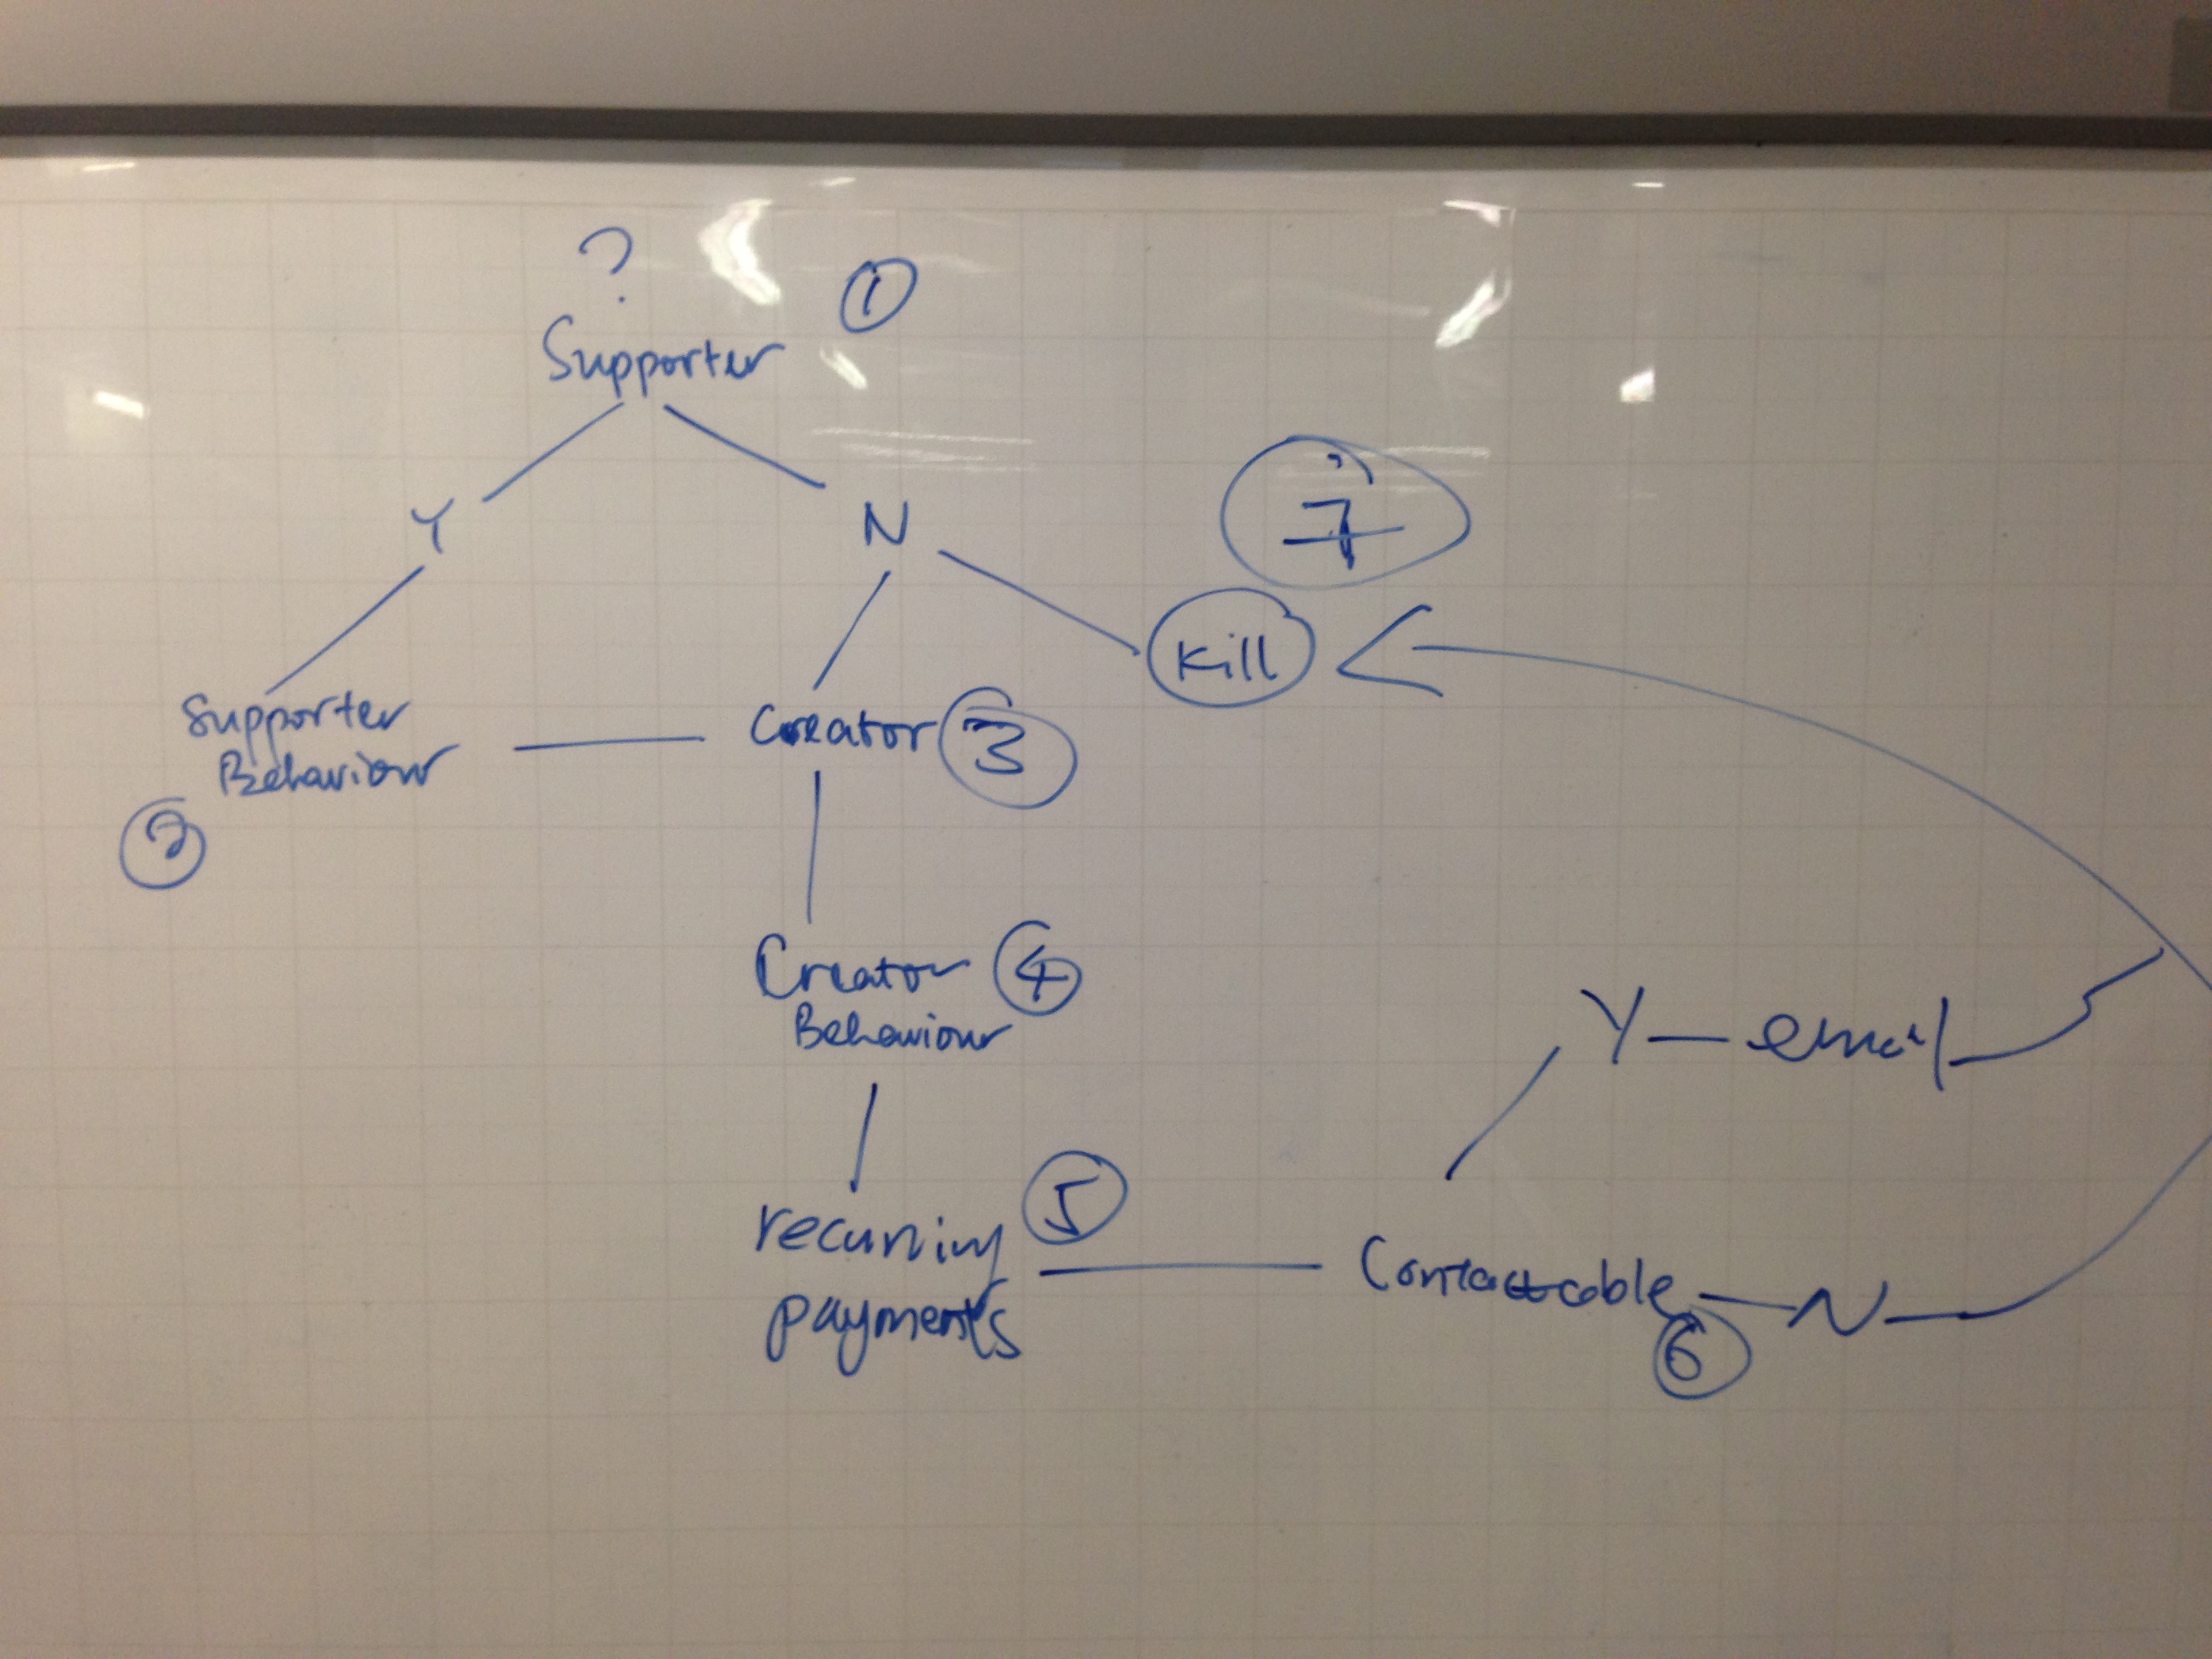 ?
Supporter 1
Y N
7
Kill
Supporter
Behaviour
2
Creator 3
Creator 4
Behaviour
Y email
recurring 5
payments
Contactable N
6